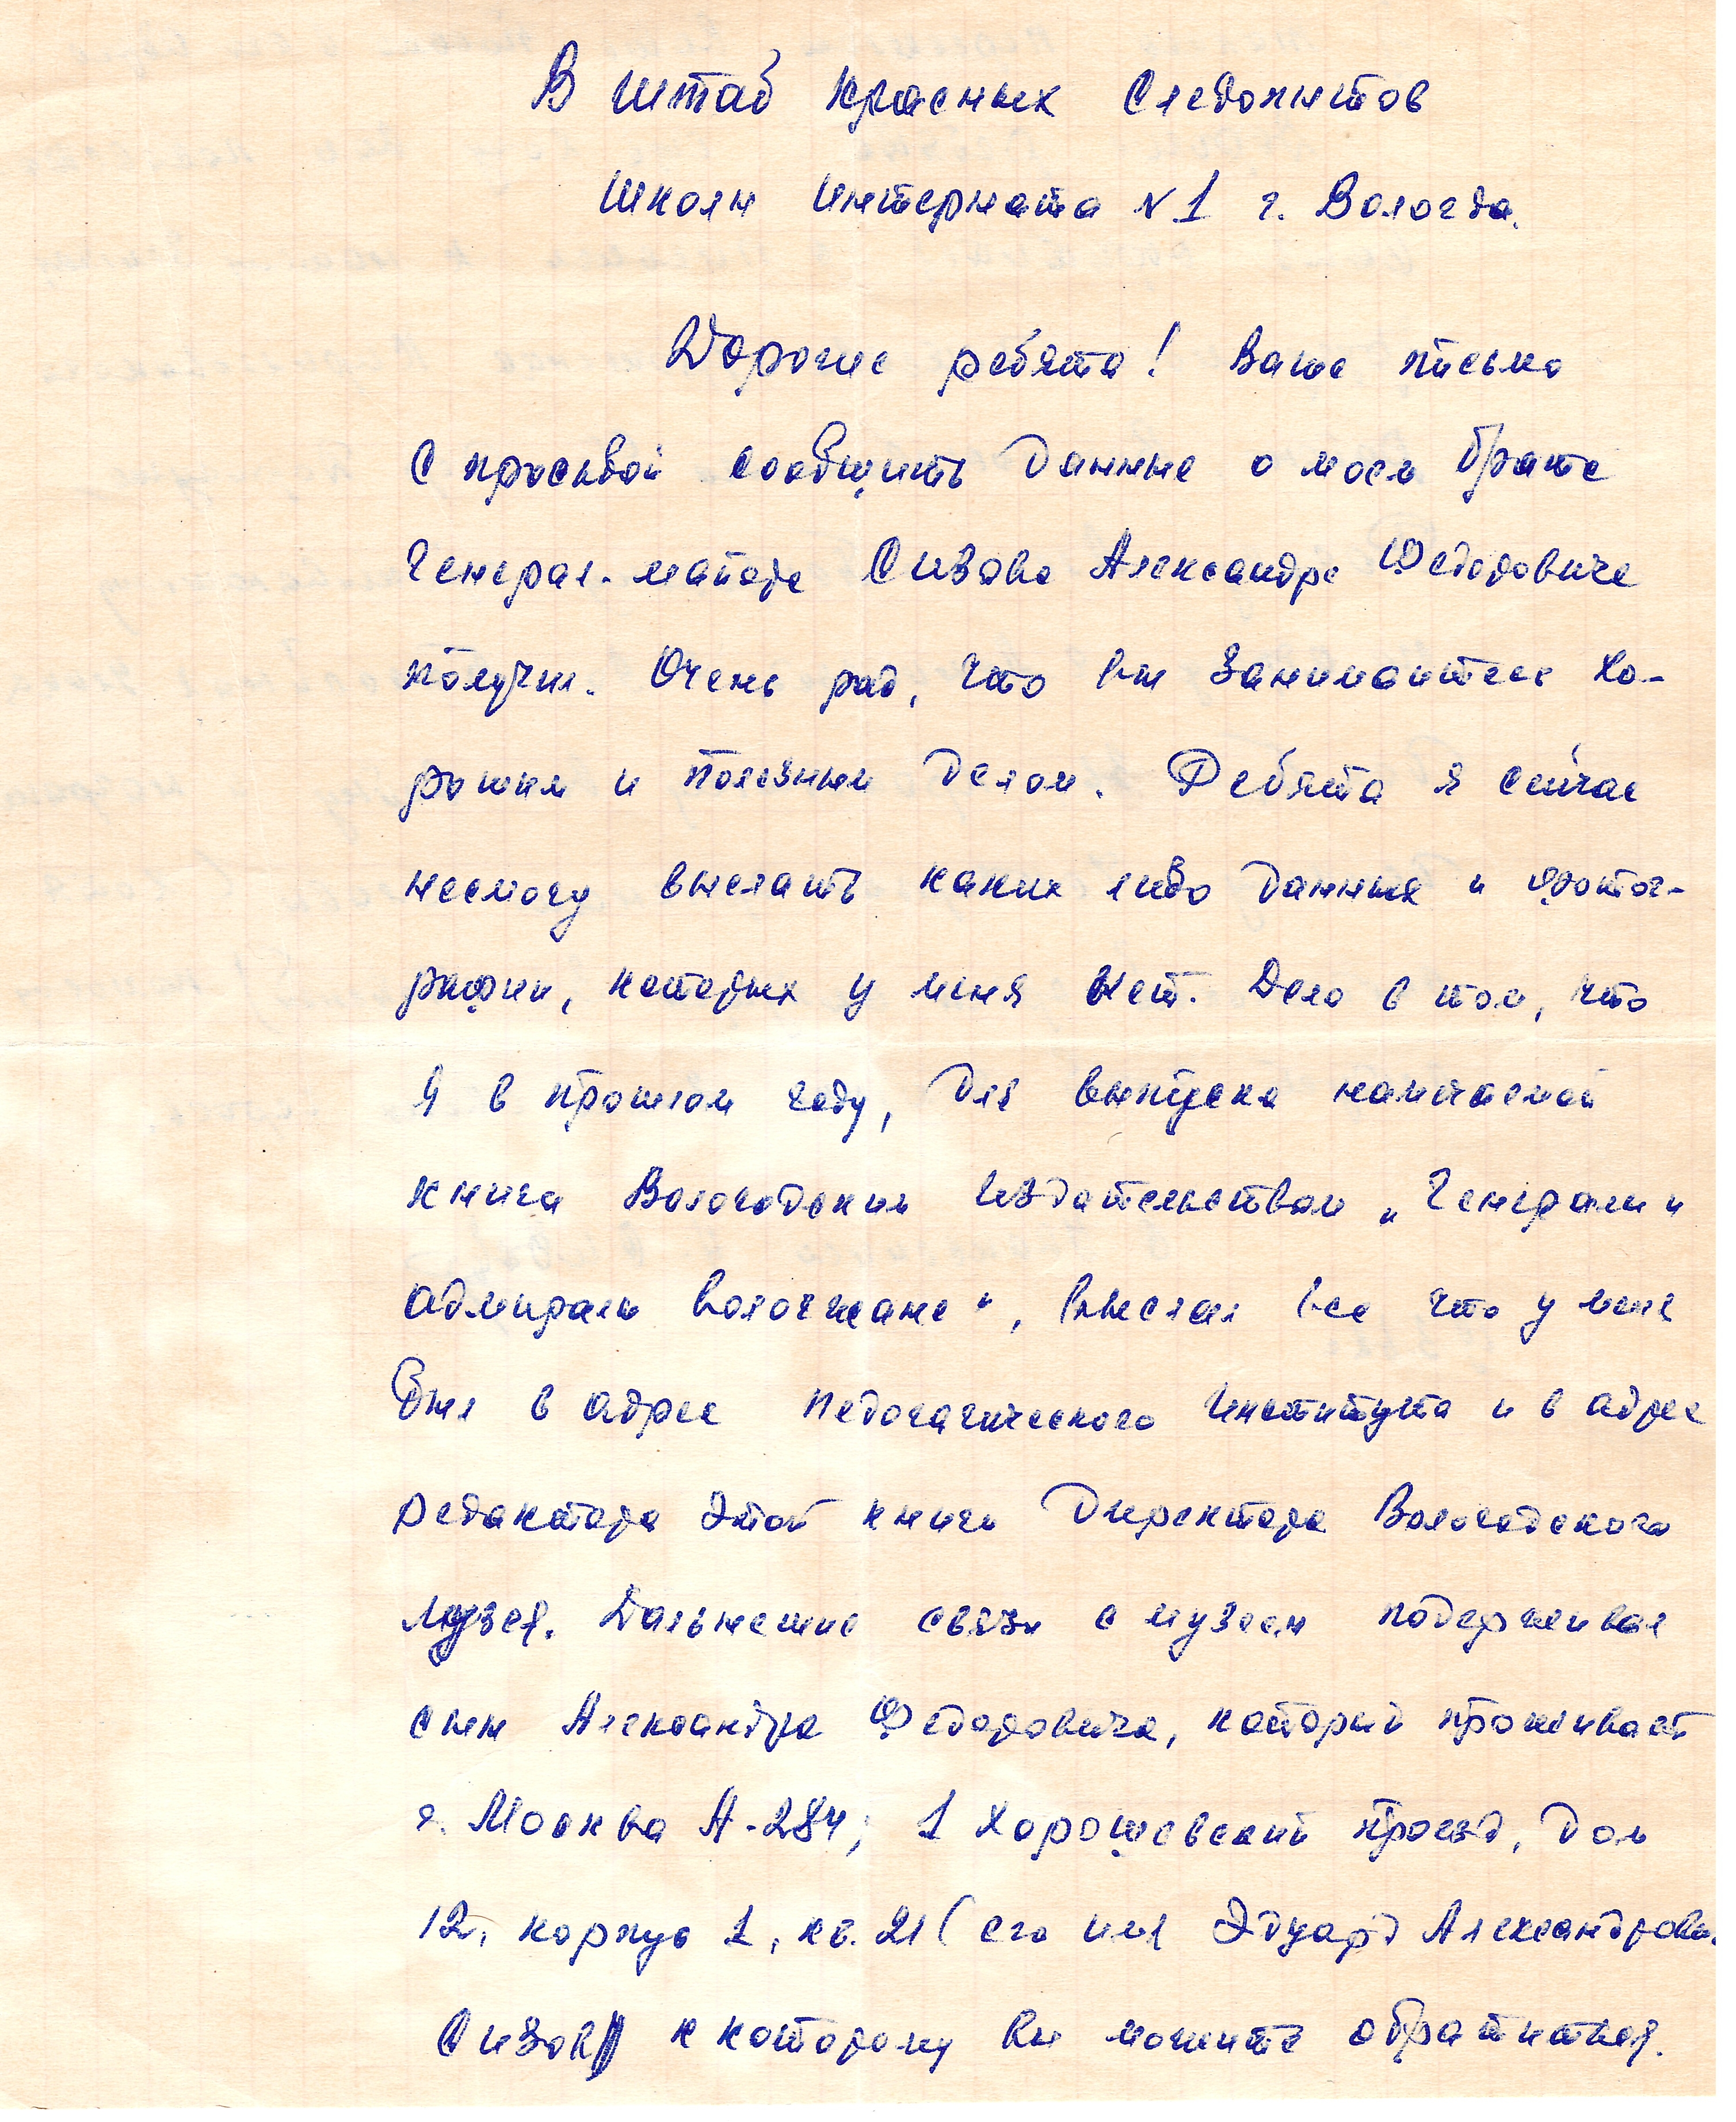 В штаб красных следопытов
школы интерната №1 г. Вологда.
Дорогие ребята! Ваше письмо
с просьбой сообщить данные о моем брате
генерал-майоре Сизове Александре Федоровиче
получил. Очень рад, что вы занимаитесь хо-
рошим и полезным делом. Ребята я сейчас
несмогу выслать каких либо данных и фотог-
рафии, которых у меня нет. Дело в том, что
я в прошлом году, для выпуска намичаемой
книга Вологодским издательством „Генералы и
адмиралы вологжане", выслал все что у меня
был в адрес Педогагического Института и в адрес
редактора этой книги Директора Вологодского
музея. Дальнешие связи с музеем подерживал
сын Александра Федоровича, который проживает
г. Москва А-284; 1 Хорошевский проезд, дом
12, корпус 1, кв. 21 (его имя Эдуард Александрови.
Сизов к которому вы можите обратиться.